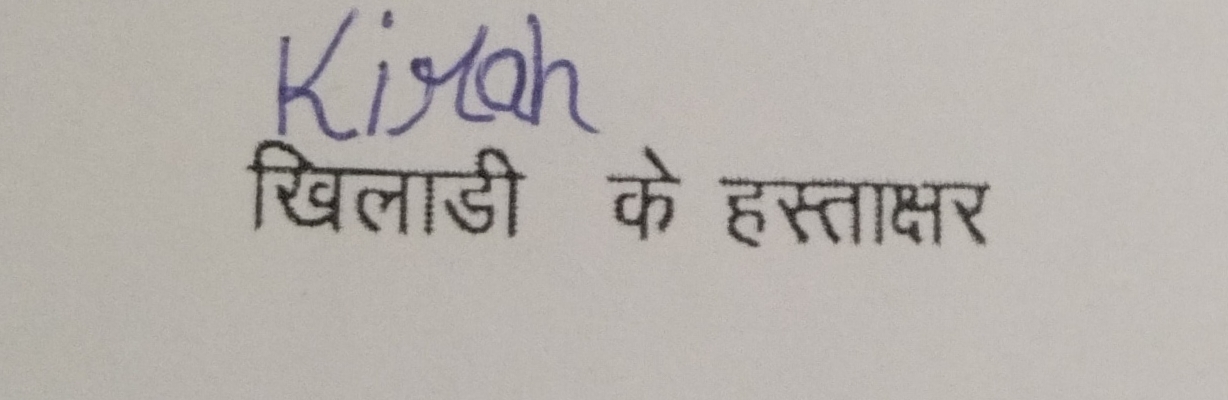 Kiran
खिलाडी के हस्ताक्षर